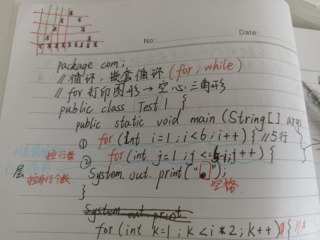 No:
Date:
package com;
// 循环,嵌套循环 (for, while)
// for打印图形→空心三角形
public class Test1 {
public static void main (String[] args
① for (int i=1; i<6; i++) { //5行
控行数 ② for (int j=1; j<=5-i; j++) {
层 控每行个数 System.out.print(" ");
空格
}
System.out.print
for (int k=1; k<i*2; k++) { //